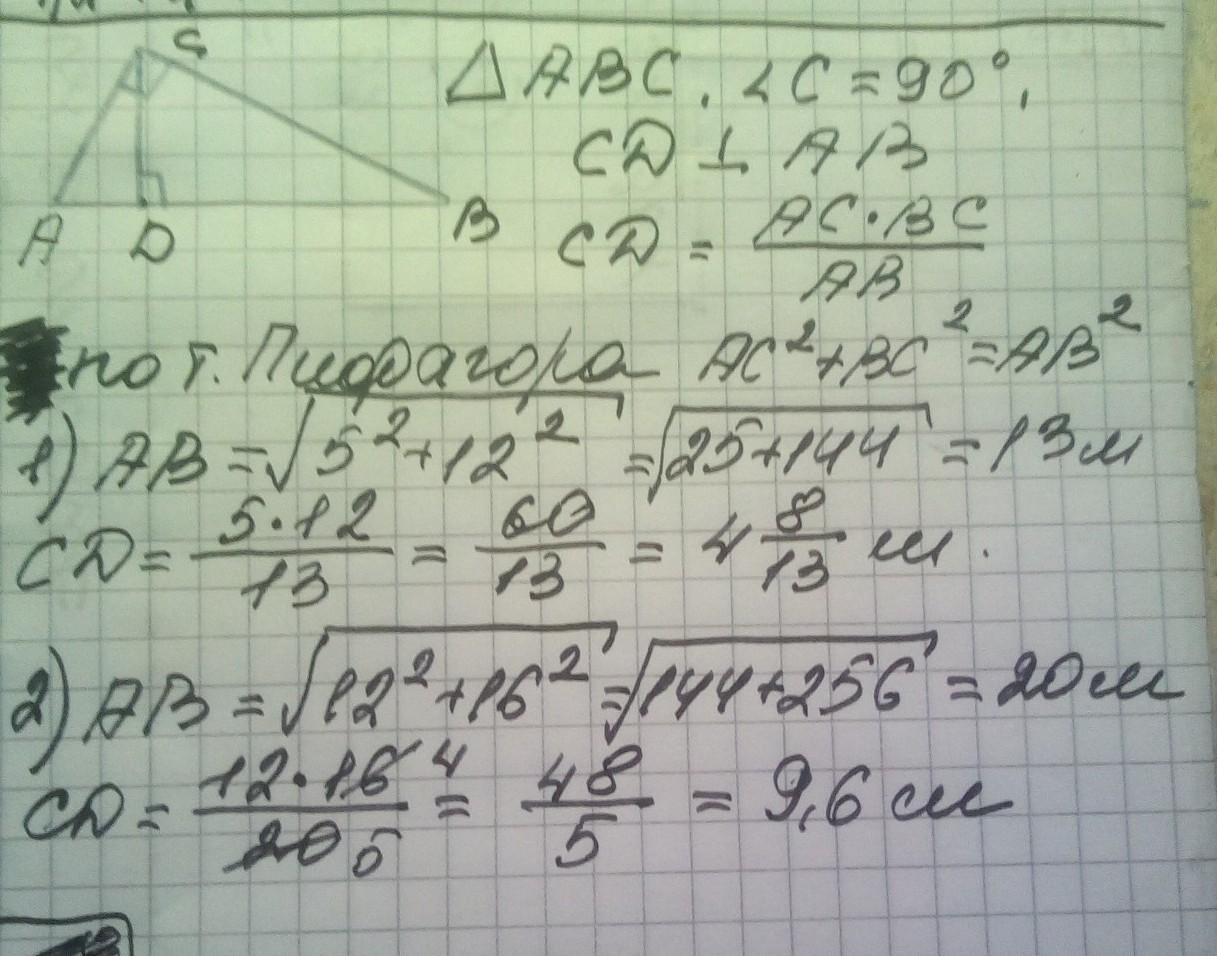 C
△ABC. ∠C = 90°,
CD ⊥ AB
A D B
CD = AC·BC / AB
по т. Пифагора AC² + BC² = AB²
1) AB = √5² + 12² = √25 + 144 = 13 м
CD = 5·12 / 13 = 60 / 13 = 4 8/13 м.
2) AB = √12² + 16² = √144 + 256 = 20 м
CD = 12·16 4 / 20 5 = 48 / 5 = 9,6 см